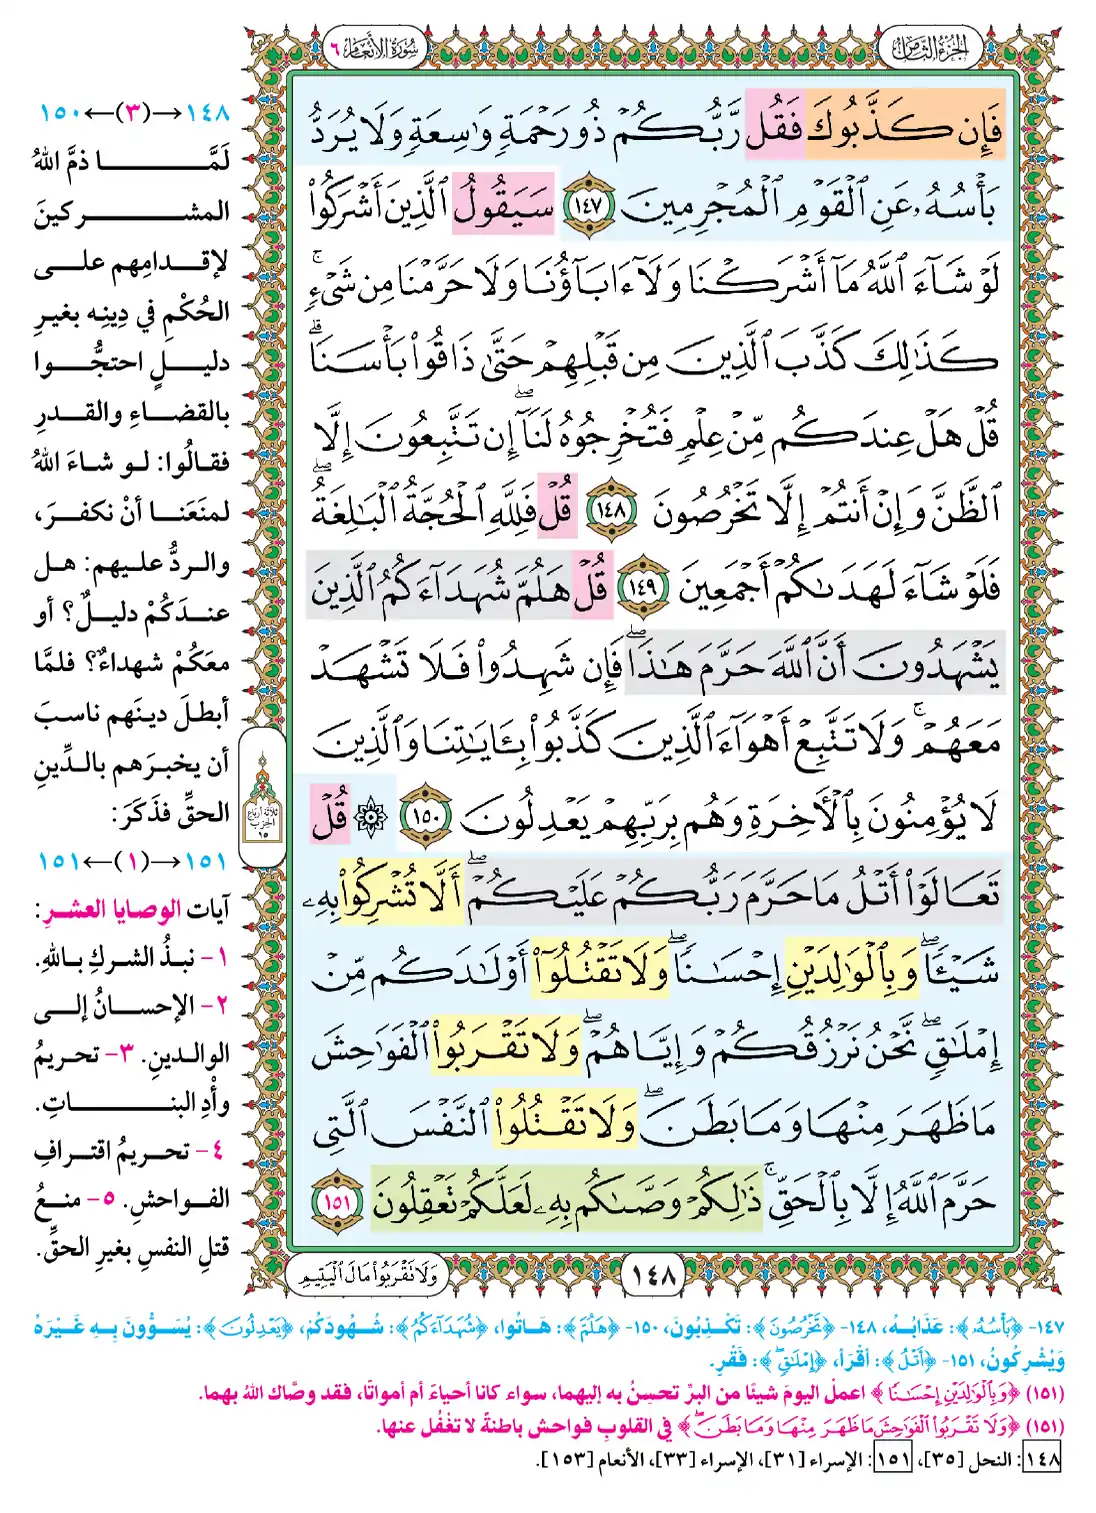 الجزء الثامن
سورة الأنعام ٦
فَإِن كَذَّبُوكَ فَقُل رَّبُّكُمْ ذُو رَحْمَةٍ وَٰسِعَةٍ وَلَا يُرَدُّ
بَأْسُهُۥ عَنِ ٱلْقَوْمِ ٱلْمُجْرِمِينَ ١٤٧ سَيَقُولُ ٱلَّذِينَ أَشْرَكُوا۟
لَوْ شَآءَ ٱللَّهُ مَآ أَشْرَكْنَا وَلَآ ءَابَآؤُنَا وَلَا حَرَّمْنَا مِن شَىْءٍ ۚ
كَذَٰلِكَ كَذَّبَ ٱلَّذِينَ مِن قَبْلِهِمْ حَتَّىٰ ذَاقُوا۟ بَأْسَنَا ۗ
قُلْ هَلْ عِندَكُم مِّنْ عِلْمٍ فَتُخْرِجُوهُ لَنَآ ۖ إِن تَتَّبِعُونَ إِلَّا
ٱلظَّنَّ وَإِنْ أَنتُمْ إِلَّا تَخْرُصُونَ ١٤٨ قُلْ فَلِلَّهِ ٱلْحُجَّةُ ٱلْبَٰلِغَةُ ۖ
فَلَوْ شَآءَ لَهَدَىٰكُمْ أَجْمَعِينَ ١٤٩ قُلْ هَلُمَّ شُهَدَآءَكُمُ ٱلَّذِينَ
يَشْهَدُونَ أَنَّ ٱللَّهَ حَرَّمَ هَٰذَا ۖ فَإِن شَهِدُوا۟ فَلَا تَشْهَدْ
مَعَهُمْ ۚ وَلَا تَتَّبِعْ أَهْوَآءَ ٱلَّذِينَ كَذَّبُوا۟ بِـَٔايَٰتِنَا وَٱلَّذِينَ
لَا يُؤْمِنُونَ بِٱلْـَٔاخِرَةِ وَهُم بِرَبِّهِمْ يَعْدِلُونَ ١٥٠ ۞ قُلْ
تَعَالَوْا۟ أَتْلُ مَا حَرَّمَ رَبُّكُمْ عَلَيْكُمْ ۖ أَلَّا تُشْرِكُوا۟ بِهِۦ
شَيْـًٔا ۖ وَبِٱلْوَٰلِدَيْنِ إِحْسَٰنًا ۖ وَلَا تَقْتُلُوٓا۟ أَوْلَٰدَكُم مِّنْ
إِمْلَٰقٍ ۖ نَّحْنُ نَرْزُقُكُمْ وَإِيَّاهُمْ ۖ وَلَا تَقْرَبُوا۟ ٱلْفَوَٰحِشَ
مَا ظَهَرَ مِنْهَا وَمَا بَطَنَ ۖ وَلَا تَقْتُلُوا۟ ٱلنَّفْسَ ٱلَّتِى
حَرَّمَ ٱللَّهُ إِلَّا بِٱلْحَقِّ ۚ ذَٰلِكُمْ وَصَّىٰكُم بِهِۦ لَعَلَّكُمْ تَعْقِلُونَ ١٥١
١٤٨
وَلَا تَقْرَبُوا۟ مَالَ ٱلْيَتِيمِ
ثلاثة أرباع
الحزب
١٥
١٤٨→(٣)←١٥٠
لَمَّا ذمَّ اللهُ
المشركينَ
لإقدامِهم على
الحُكْمِ في دِينِه بغيرِ
دليلٍ احتجُّوا
بالقضاءِ والقدرِ
فقالُوا: لو شاءَ اللهُ
لمنَعَنا أنْ نكفرَ،
والردُّ عليهم: هل
عندَكُمْ دليلٌ؟ أو
معَكُمْ شهداءٌ؟ فلمَّا
أبطلَ دينَهم ناسبَ
أن يخبرَهم بالدِّينِ
الحقِّ فذَكَرَ:
١٥١→(١)←١٥١
آيات الوصايا العشرِ:
١- نبذُ الشركِ باللهِ.
٢- الإحسانُ إلى
الوالدينِ. ٣- تحريمُ
وأْدِ البناتِ.
٤- تحريمُ اقترافِ
الفواحشِ. ٥- منعُ
قتلِ النفسِ بغيرِ الحقِّ.
١٤٧- ﴿بَأْسُهُۥ﴾: عَذَابُهُ، ١٤٨- ﴿تَخْرُصُونَ﴾: تَكْذِبُونَ، ١٥٠- ﴿هَلُمَّ﴾: هَاتُوا، ﴿شُهَدَآءَكُمُ﴾: شُهُودَكُمْ، ﴿يَعْدِلُونَ﴾: يُسَوُّونَ بِهِ غَيْرَهُ
وَيُشْرِكُونَ، ١٥١- ﴿أَتْلُ﴾: أَقْرَأْ، ﴿إِمْلَٰقٍ﴾: فَقْرٍ.
(١٥١) ﴿وَبِٱلْوَٰلِدَيْنِ إِحْسَٰنًا﴾ اعملْ اليومَ شيئًا من البرِّ تحسِنُ به إليهما، سواء كانا أحياءً أم أمواتًا، فقد وصَّاك اللهُ بهما.
(١٥١) ﴿وَلَا تَقْرَبُوا۟ ٱلْفَوَٰحِشَ مَا ظَهَرَ مِنْهَا وَمَا بَطَنَ ۖ﴾ في القلوبِ فواحش باطنةٌ لا تغْفُل عنها.
١٤٨: النحل [٣٥]، ١٥١: الإسراء [٣١]، الإسراء [٣٣]، الأنعام [١٥٣].